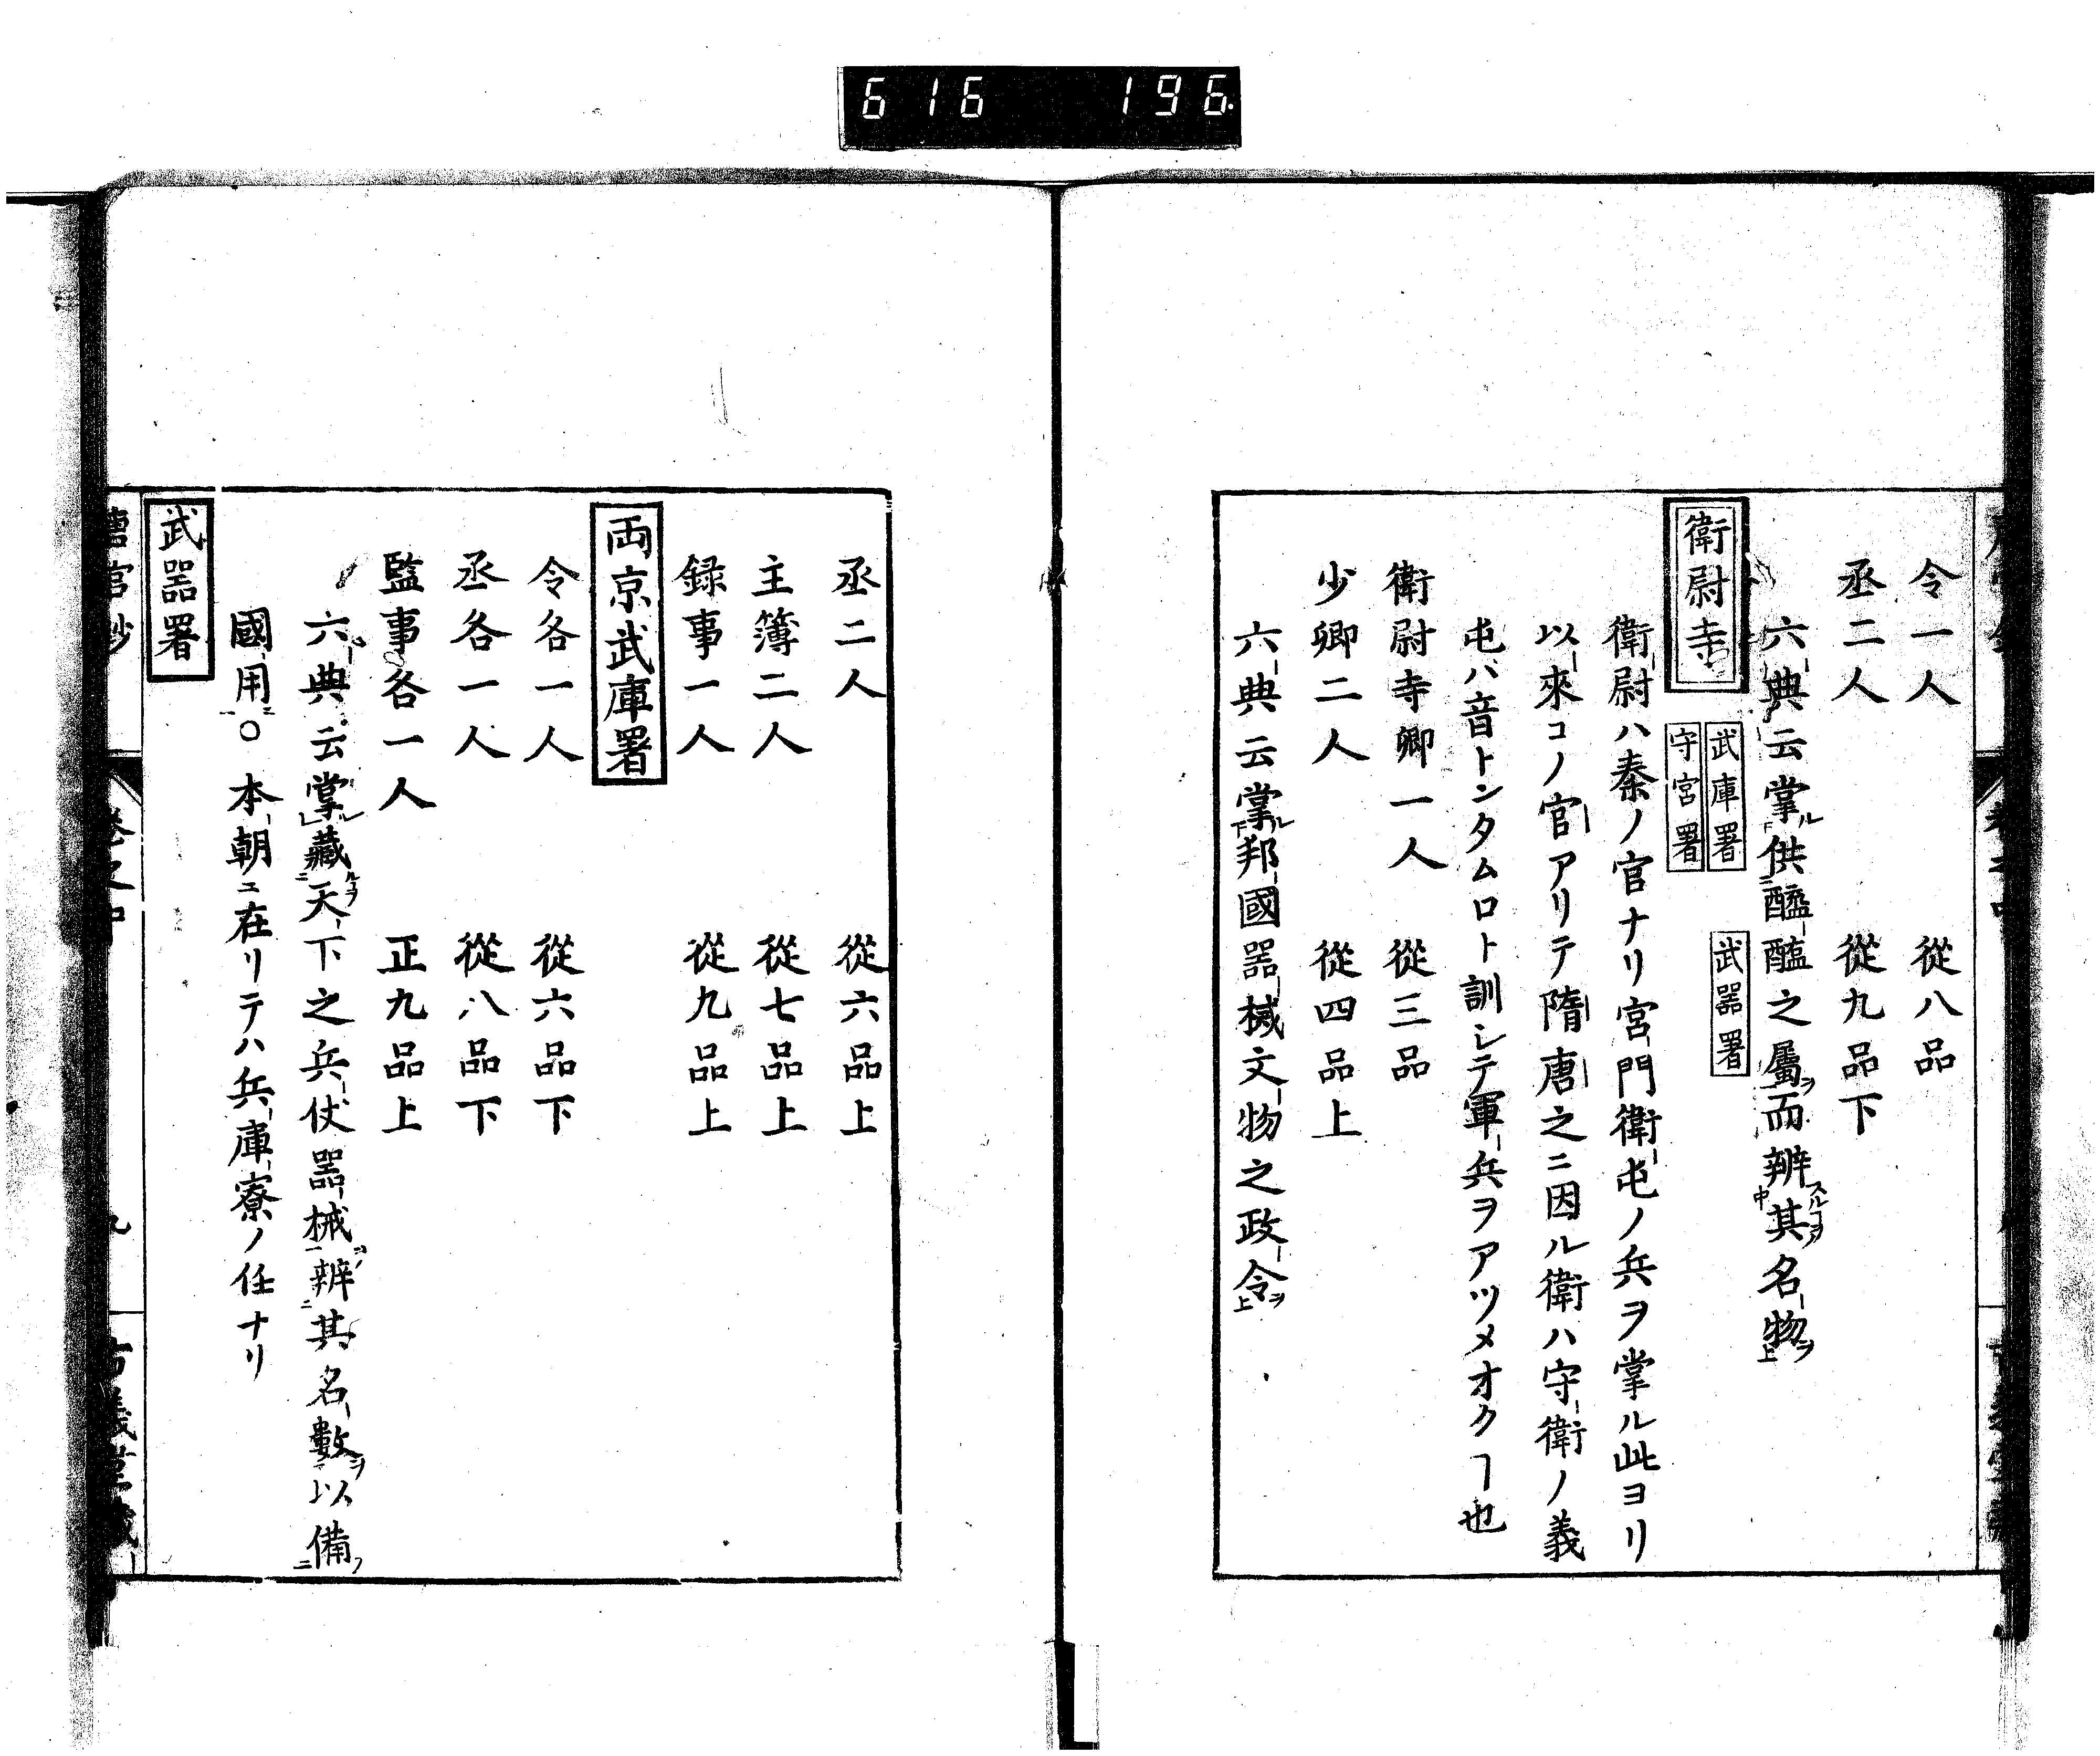 616 196.
令一人 從八品
丞二人 從九品下
六典云掌ル下供ニ醯醢之屬ヲ而辨スルヿヲ中其名物ヲ上
衛尉寺 武庫署 武器署
守宮署
衛尉ハ秦ノ官ナリ宮門衛屯ノ兵ヲ掌ル此ヨリ
以來コノ官アリテ隋唐之ニ因ル衛ハ守衛ノ義
屯ハ音トンタムロト訓レテ軍兵ヲアツメオクヿ也
衛尉寺卿一人 從三品
少卿二人 從四品上
六典云掌ル下邦國器械文物之政令ヲ上
丞二人 從六品上
主簿二人 從七品上
録事一人 從九品上
両京武庫署
令各一人 從六品下
丞各一人 從八品下
監事各一人 正九品上
六典云掌藏天下之兵仗器械辨其名數ヲ以備フ
國用○本朝ニ在リテハ兵庫寮ノ任ナリ
武器署
唐官鈔 卷之中 九